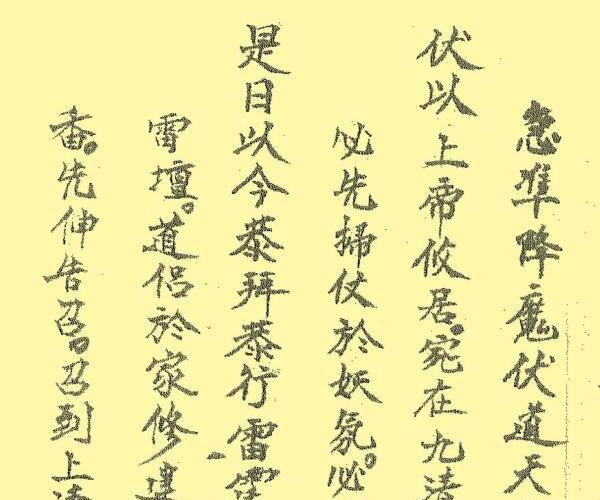 急準降魔伏道天
伏以上帝攸居。宛在九清
必先掃仗於妖氛。必
是日以今恭拜恭行雷霆
雷壇。道侶於家修建
香。先伸告召。召到上清